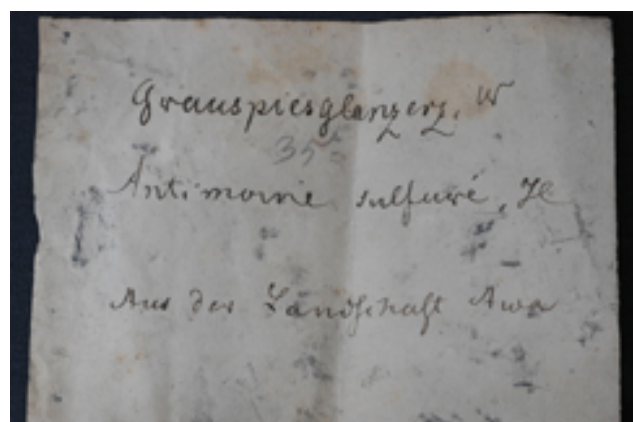 Grauspiesglanzerz, W
35
Antimoine sulfuré, H
Aus der Landschaft Awa